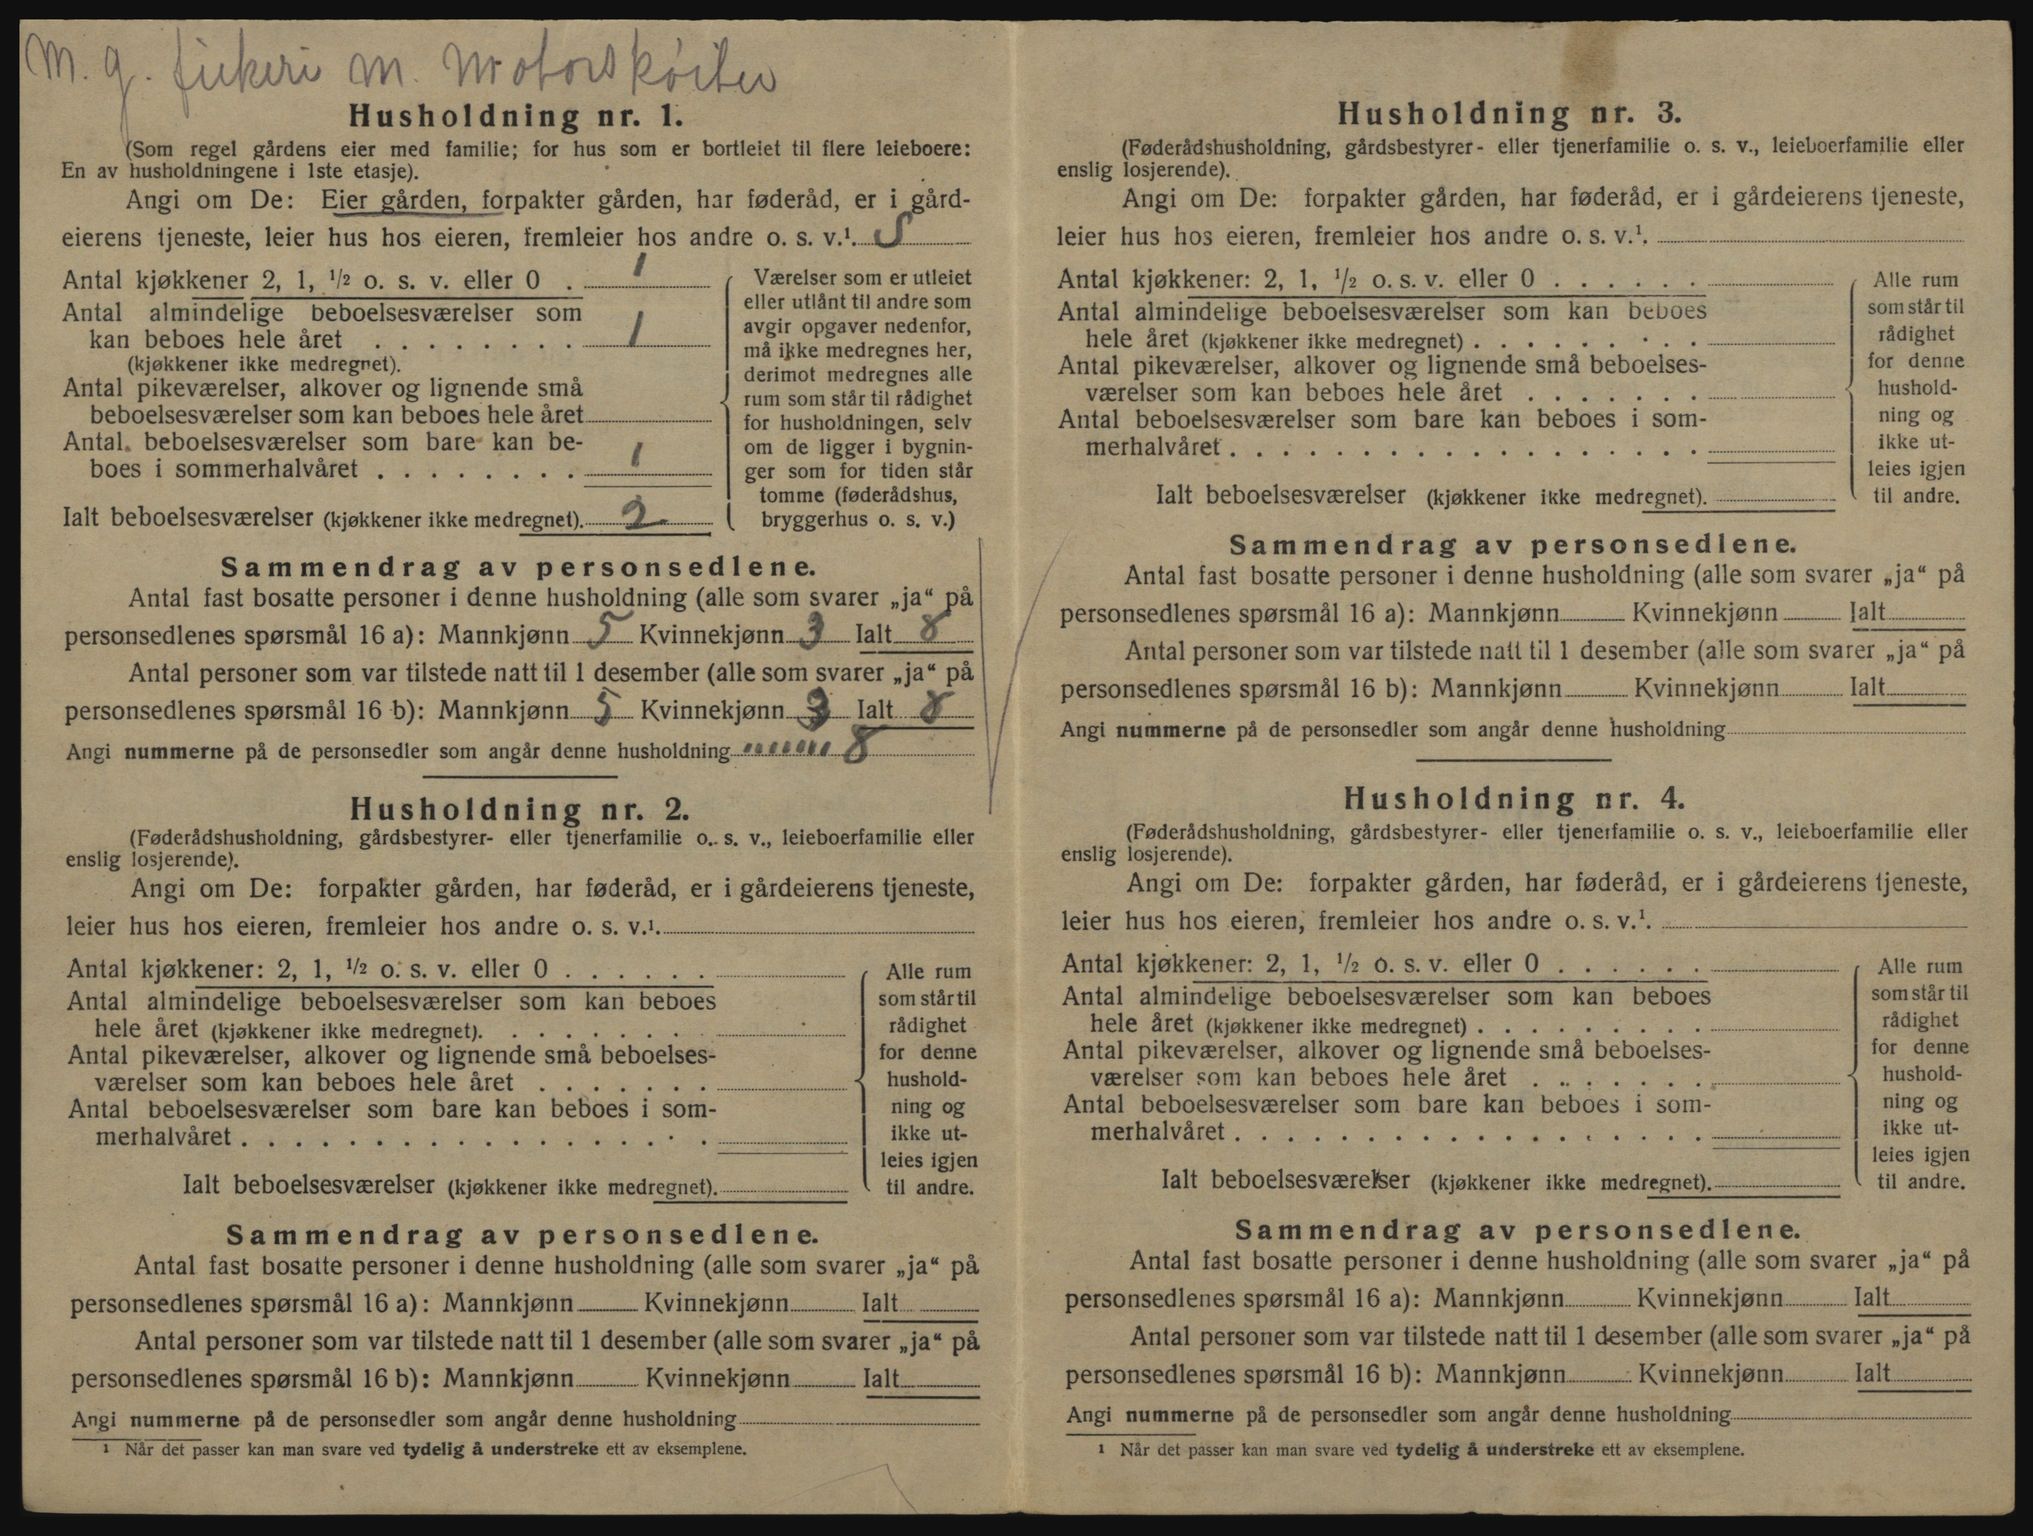 M. g. fiskeri m. Motorskøiter
Husholdning nr. 1.
(Som regel gårdens eier med familie; for hus som er bortleiet til flere leieboere:
En av husholdningene i 1ste etasje).
Angi om De: Eier gården, forpakter gården, har føderåd, er i gård-
eierens tjeneste, leier hus hos eieren, fremleier hos andre o. s. v.¹. S
Antal kjøkkener 2, 1, ½ o. s. v. eller 0 . 1
Antal almindelige beboelsesværelser som
kan beboes hele året . . . . . . . . 1
(kjøkkener ikke medregnet).
Antal pikeværelser, alkover og lignende små
beboelsesværelser som kan beboes hele året
Antal beboelsesværelser som bare kan be-
boes i sommerhalvåret . . . . . . . . 1
Ialt beboelsesværelser (kjøkkener ikke medregnet). 2
Værelser som er utleiet
eller utlånt til andre som
avgir opgaver nedenfor,
må ikke medregnes her,
derimot medregnes alle
rum som står til rådighet
for husholdningen, selv
om de ligger i bygnin-
ger som for tiden står
tomme (føderådshus,
bryggerhus o. s. v.)
Sammendrag av personsedlene.
Antal fast bosatte personer i denne husholdning (alle som svarer „ja“ på
personsedlenes spørsmål 16 a): Mannkjønn 5 Kvinnekjønn 3 Ialt 8
Antal personer som var tilstede natt til 1 desember (alle som svarer „ja“ på
personsedlenes spørsmål 16 b): Mannkjønn 5 Kvinnekjønn 3 Ialt 8
Angi nummerne på de personsedler som angår denne husholdning 8
Husholdning nr. 2.
(Føderådshusholdning, gårdsbestyrer- eller tjenerfamilie o. s. v., leieboerfamilie eller
enslig losjerende).
Angi om De: forpakter gården, har føderåd, er i gårdeierens tjeneste,
leier hus hos eieren, fremleier hos andre o. s. v.¹.
Antal kjøkkener: 2, 1, ½ o. s. v. eller 0 . . . . . .
Antal almindelige beboelsesværelser som kan beboes
hele året (kjøkkener ikke medregnet). . . . . . . .
Antal pikeværelser, alkover og lignende små beboelses-
værelser som kan beboes hele året . . . . . . .
Antal beboelsesværelser som bare kan beboes i som-
merhalvåret . . . . . . . . . . . . . . . . . .
Ialt beboelsesværelser (kjøkkener ikke medregnet).
Alle rum
som står til
rådighet
for denne
hushold-
ning og
ikke ut-
leies igjen
til andre.
Sammendrag av personsedlene.
Antal fast bosatte personer i denne husholdning (alle som svarer „ja“ på
personsedlenes spørsmål 16 a): Mannkjønn Kvinnekjønn Ialt
Antal personer som var tilstede natt til 1 desember (alle som svarer „ja“ på
personsedlenes spørsmål 16 b): Mannkjønn Kvinnekjønn Ialt
Angi nummerne på de personsedler som angår denne husholdning
¹ Når det passer kan man svare ved tydelig å understreke ett av eksemplene.
Husholdning nr. 3.
(Føderådshusholdning, gårdsbestyrer- eller tjenerfamilie o. s. v., leieboerfamilie eller
enslig losjerende).
Angi om De: forpakter gården, har føderåd, er i gårdeierens tjeneste,
leier hus hos eieren, fremleier hos andre o. s. v.¹.
Antal kjøkkener: 2, 1, ½ o. s. v. eller 0 . . . . . .
Antal almindelige beboelsesværelser som kan beboes
hele året (kjøkkener ikke medregnet) . . . . . . . . .
Antal pikeværelser, alkover og lignende små beboelses-
værelser som kan beboes hele året . . . . . . .
Antal beboelsesværelser som bare kan beboes i som-
merhalvåret . . . . . . . . . . . . . . . . . .
Ialt beboelsesværelser (kjøkkener ikke medregnet).
Alle rum
som står til
rådighet
for denne
hushold-
ning og
ikke ut-
leies igjen
til andre.
Sammendrag av personsedlene.
Antal fast bosatte personer i denne husholdning (alle som svarer „ja“ på
personsedlenes spørsmål 16 a): Mannkjønn Kvinnekjønn Ialt
Antal personer som var tilstede natt til 1 desember (alle som svarer „ja“ på
personsedlenes spørsmål 16 b): Mannkjønn Kvinnekjønn Ialt
Angi nummerne på de personsedler som angår denne husholdning
Husholdning nr. 4.
(Føderådshusholdning, gårdsbestyrer- eller tjenerfamilie o. s. v., leieboerfamilie eller
enslig losjerende).
Angi om De: forpakter gården, har føderåd, er i gårdeierens tjeneste,
leier hus hos eieren, fremleier hos andre o. s. v.¹.
Antal kjøkkener: 2, 1, ½ o. s. v. eller 0 . . . . . .
Antal almindelige beboelsesværelser som kan beboes
hele året (kjøkkener ikke medregnet) . . . . . . . . .
Antal pikeværelser, alkover og lignende små beboelses-
værelser som kan beboes hele året . . . . . . .
Antal beboelsesværelser som bare kan beboes i som-
merhalvåret . . . . . . . . . . . . . . . . . .
Ialt beboelsesværelser (kjøkkener ikke medregnet).
Alle rum
som står til
rådighet
for denne
hushold-
ning og
ikke ut-
leies igjen
til andre.
Sammendrag av personsedlene.
Antal fast bosatte personer i denne husholdning (alle som svarer „ja“ på
personsedlenes spørsmål 16 a): Mannkjønn Kvinnekjønn Ialt
Antal personer som var tilstede natt til 1 desember (alle som svarer „ja“ på
personsedlenes spørsmål 16 b): Mannkjønn Kvinnekjønn Ialt
Angi nummerne på de personsedler som angår denne husholdning
¹ Når det passer kan man svare ved tydelig å understreke ett av eksemplene.